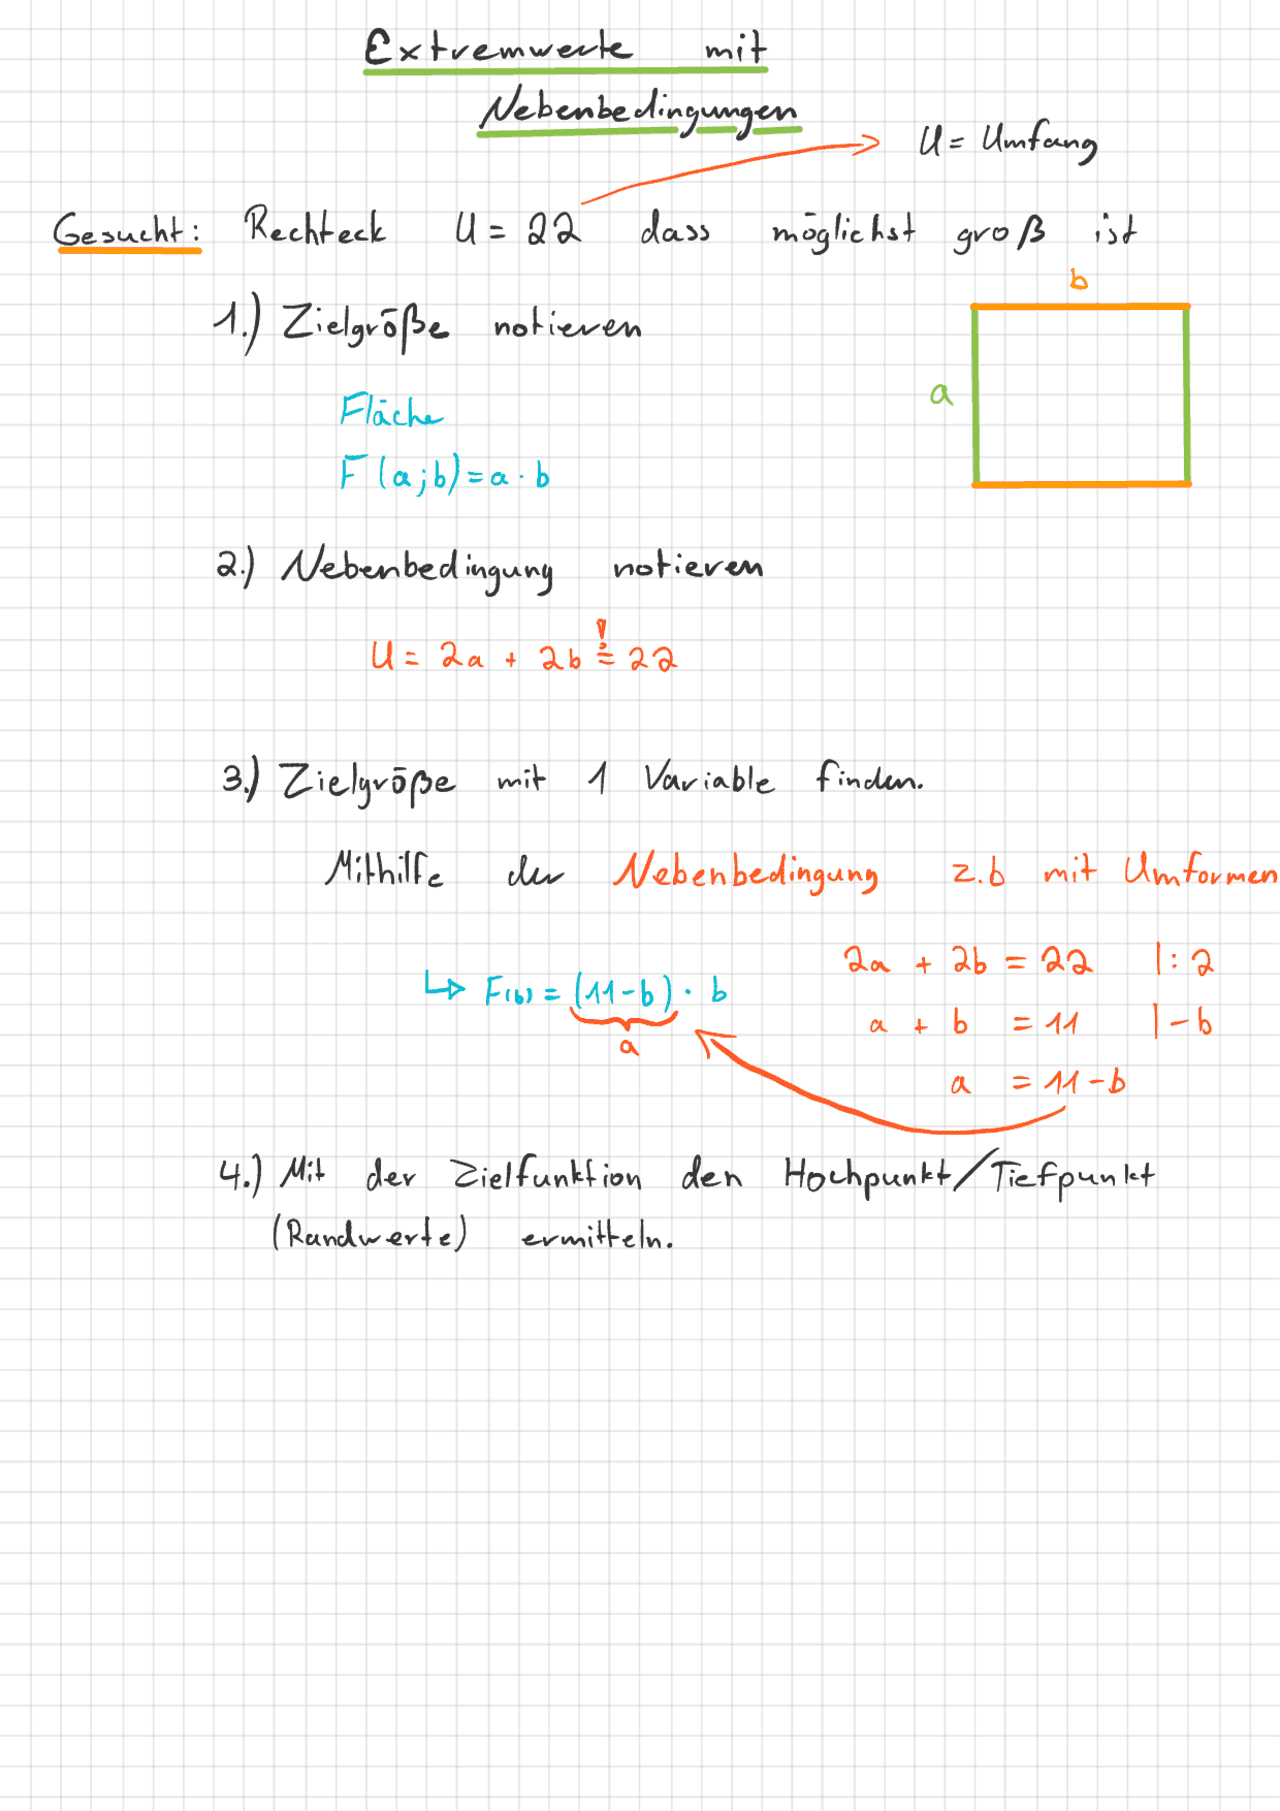 Extremwerte mit
Nebenbedingungen
U = Umfang
Gesucht: Rechteck U = 22 dass möglichst groß ist
b
1.) Zielgröße notieren
a
Fläche
F(a;b)=a·b
2.) Nebenbedingung notieren
U = 2a + 2b != 22
3.) Zielgröße mit 1 Variable finden.
Mithilfe der Nebenbedingung z.b mit Umformen
2a + 2b = 22 |:2
↳ F(b) = (11-b)·b
a + b = 11 |-b
a
a = 11-b
4.) Mit der Zielfunktion den Hochpunkt/Tiefpunkt
(Randwerte) ermitteln.